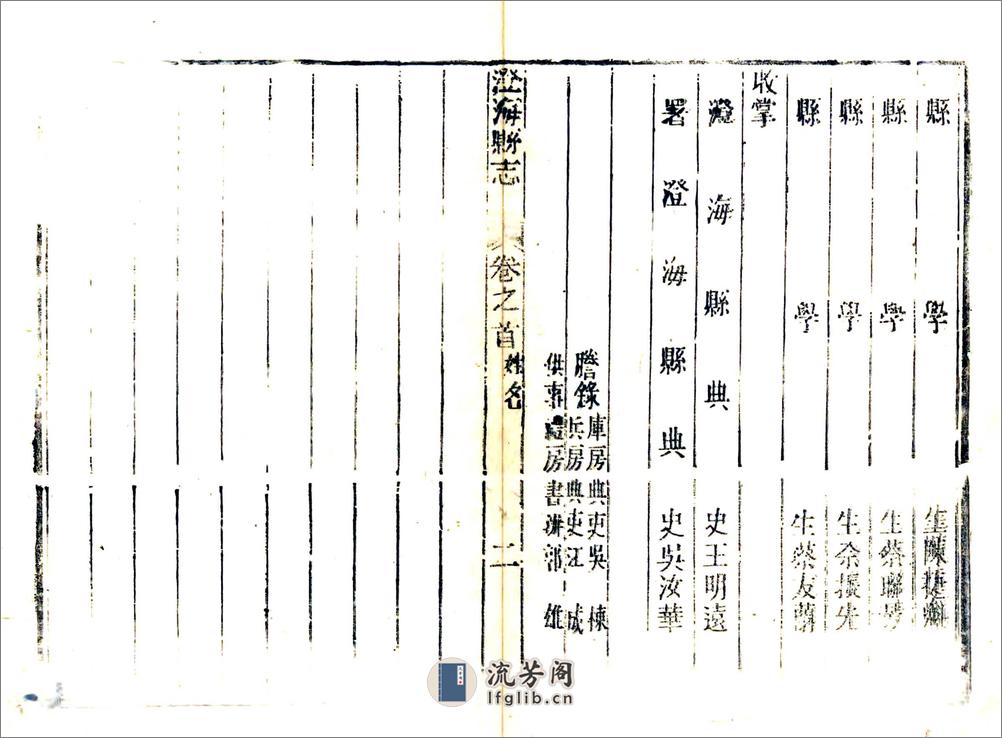 縣學生陳捷
縣學生蔡聯
縣學生余振先
縣學生蔡友
收掌
澄海縣典史王明遠
署澄海縣典史吳汝華
謄錄
庫房典吏吳棟
兵房典吏江成
供事禮房書辦 雄
澄海縣志
卷之首
姓名
二
流芳阁
lfglib.cn